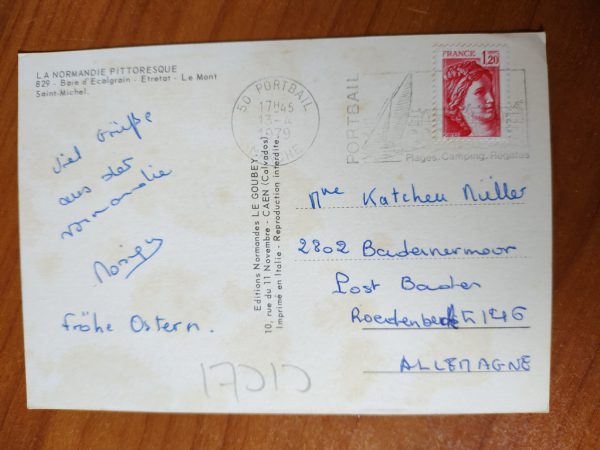 LA NORMANDIE PITTORESQUE
829 - Baie d'Ecalgrain - Etretat - Le Mont
Saint-Michel.
Viel Grüße
aus der
Normandie
Fröhe Ostern.
Editions Normandes LE GOUBEY.
10, rue du 11 Novembre - CAEN (Calvados)
Imprimé en Italie - Reproduction interdite.
50 PORTBAIL
17H45
13-4
1979
MANCHE
PORTBAIL
Plages. Camping. Régates
FRANCE
1,20
Mme Katchen Müller
2802 Badenermoor
Post Baden
146
ALLEMAGNE